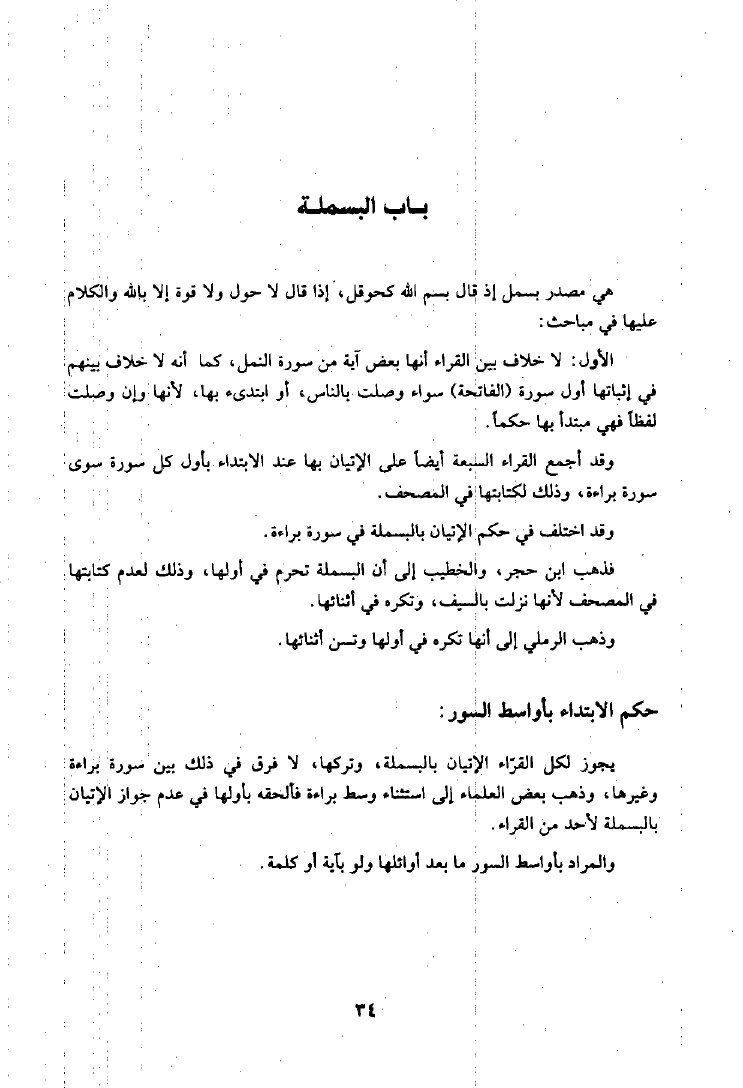 بـاب البسملـة
هي مصدر بسمل إذ قال بسم الله كحوقل، إذا قال لا حول ولا قوة إلا بالله والكلام
عليها في مباحث:
الأول: لا خلاف بين القراء أنها بعض آية من سورة النمل، كما أنه لا خلاف بينهم
في إثباتها أول سورة (الفاتحة) سواء وصلت بالناس، أو ابتدىء بها، لأنها وإن وصلت
لفظاً فهي مبتدأ بها حكماً.
وقد أجمع القراء السبعة أيضاً على الإتيان بها عند الابتداء بأول كل سورة سوى
سورة براءة، وذلك لكتابتها في المصحف.
وقد اختلف في حكم الإتيان بالبسملة في سورة براءة.
فذهب ابن حجر، والخطيب إلى أن البسملة تحرم في أولها، وذلك لعدم كتابتها
في المصحف لأنها نزلت بالسيف، وتكره في أثنائها.
وذهب الرملي إلى أنها تكره في أولها وتسن أثنائها.
حكم الابتداء بأواسط السور:
يجوز لكل القرّاء الإتيان بالبسملة، وتركها، لا فرق في ذلك بين سورة براءة
وغيرها، وذهب بعض العلماء إلى استثناء وسط براءة فألحقه بأولها في عدم جواز الإتيان
بالبسملة لأحد من القراء.
والمراد بأواسط السور ما بعد أوائلها ولو بآية أو كلمة.
٣٤